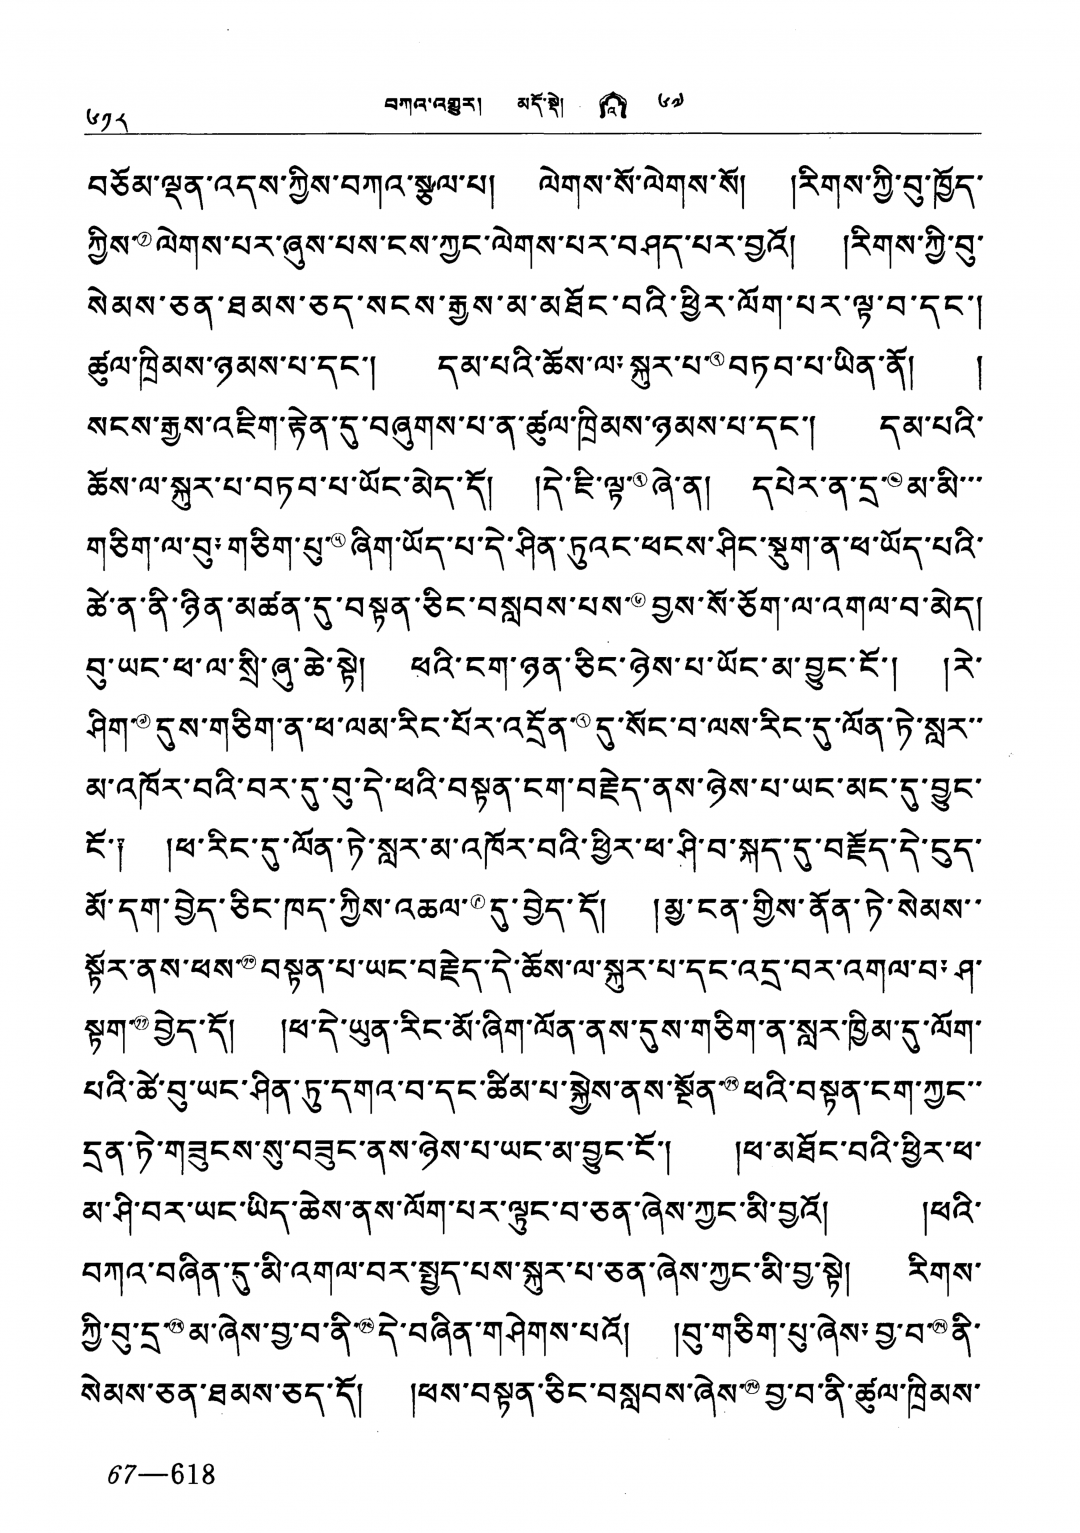 ༦༡༨ བཀའ་འགྱུར། མདོ་སྡེ། འ ༦༧
བཅོམ་ལྡན་འདས་ཀྱིས་བཀའ་སྩལ་པ། ལེགས་སོ་ལེགས་སོ། །རིགས་ཀྱི་བུ་ཁྱོད་
ཀྱིས་①ལེགས་པར་ཞུས་པས་ངས་ཀྱང་ལེགས་པར་བཤད་པར་བྱའོ། །རིགས་ཀྱི་བུ་
སེམས་ཅན་ཐམས་ཅད་སངས་རྒྱས་མ་མཐོང་བའི་ཕྱིར་ལོག་པར་ལྟ་བ་དང་།
ཚུལ་ཁྲིམས་ཉམས་པ་དང་། དམ་པའི་ཆོས་ལ་སྐུར་པ་②བཏབ་པ་ཡིན་ནོ། །
སངས་རྒྱས་འཇིག་རྟེན་དུ་བཞུགས་པ་ན་ཚུལ་ཁྲིམས་ཉམས་པ་དང་། དམ་པའི་
ཆོས་ལ་སྐུར་པ་བཏབ་པ་ཡོང་མེད་དོ། །དེ་ཇི་ལྟ་③ཞེ་ན། དཔེར་ན་དྲ་④མ་མི་
གཅིག་ལ་བུ་གཅིག་པུ་⑤ཞིག་ཡོད་པ་དེ་ཤིན་ཏུའང་ཕངས་ཤིང་སྡུག་ན་ཕ་ཡོད་པའི་
ཚེ་ན་ནི་ཉིན་མཚན་དུ་བསྟན་ཅིང་བསླབས་པས་⑥བྱས་སོ་ཅོག་ལ་འགལ་བ་མེད།
བུ་ཡང་ཕ་ལ་སྲི་ཞུ་ཆེ་སྟེ། ཕའི་ངག་ཉན་ཅིང་ཉེས་པ་ཡོང་མ་བྱུང་ངོ་། །རེ་
ཤིག་⑦དུས་གཅིག་ན་ཕ་ལམ་རིང་པོར་འདྲོན་⑧དུ་སོང་བ་ལས་རིང་དུ་ལོན་ཏེ་སླར་
མ་འཁོར་བའི་བར་དུ་བུ་དེ་ཕའི་བསྟན་ངག་བརྗེད་ནས་ཉེས་པ་ཡང་མང་དུ་བྱུང་
ངོ་། །ཕ་རིང་དུ་ལོན་ཏེ་སླར་མ་འཁོར་བའི་ཕྱིར་ཕ་ཤི་བ་སྐད་དུ་བརྗོད་དེ་དུད་
མོ་དག་བྱེད་ཅིང་ཁད་ཀྱིས་འཆལ་⑨དུ་བྱེད་དོ། །མྱ་ངན་གྱིས་ནོན་ཏེ་སེམས་
སྟོར་ནས་ཕས་⑩བསྟན་པ་ཡང་བརྗེད་དེ་ཆོས་ལ་སྐུར་པ་དང་འདྲ་བར་འགལ་བ་ཤ་
སྟག་⑪བྱེད་དོ། །ཕ་དེ་ཡུན་རིང་མོ་ཞིག་ལོན་ནས་དུས་གཅིག་ན་སླར་ཁྱིམ་དུ་ལོག་
པའི་ཚེ་བུ་ཡང་ཤིན་ཏུ་དགའ་བ་དང་ཚིམ་པ་སྐྱེས་ནས་སྔོན་⑫ཕའི་བསྟན་ངག་ཀྱང་
དྲན་ཏེ་གཟུངས་སུ་བཟུང་ནས་ཉེས་པ་ཡང་མ་བྱུང་ངོ་། །ཕ་མཐོང་བའི་ཕྱིར་ཕ་
མ་ཤི་བར་ཡང་ཡིད་ཆེས་ནས་ལོག་པར་ལྟུང་བ་ཅན་ཞེས་ཀྱང་མི་བྱའོ། །ཕའི་
བཀའ་བཞིན་དུ་མི་འགལ་བར་སྤྱད་པས་སྐུར་པ་ཅན་ཞེས་ཀྱང་མི་བྱ་སྟེ། རིགས་
ཀྱི་བུ་དྲ་⑬མ་ཞེས་བྱ་བ་ནི་⑭དེ་བཞིན་གཤེགས་པའོ། །བུ་གཅིག་པུ་ཞེས་བྱ་བ་⑮ནི་
སེམས་ཅན་ཐམས་ཅད་དོ། །ཕས་བསྟན་ཅིང་བསླབས་ཞེས་⑯བྱ་བ་ནི་ཚུལ་ཁྲིམས་
67—618